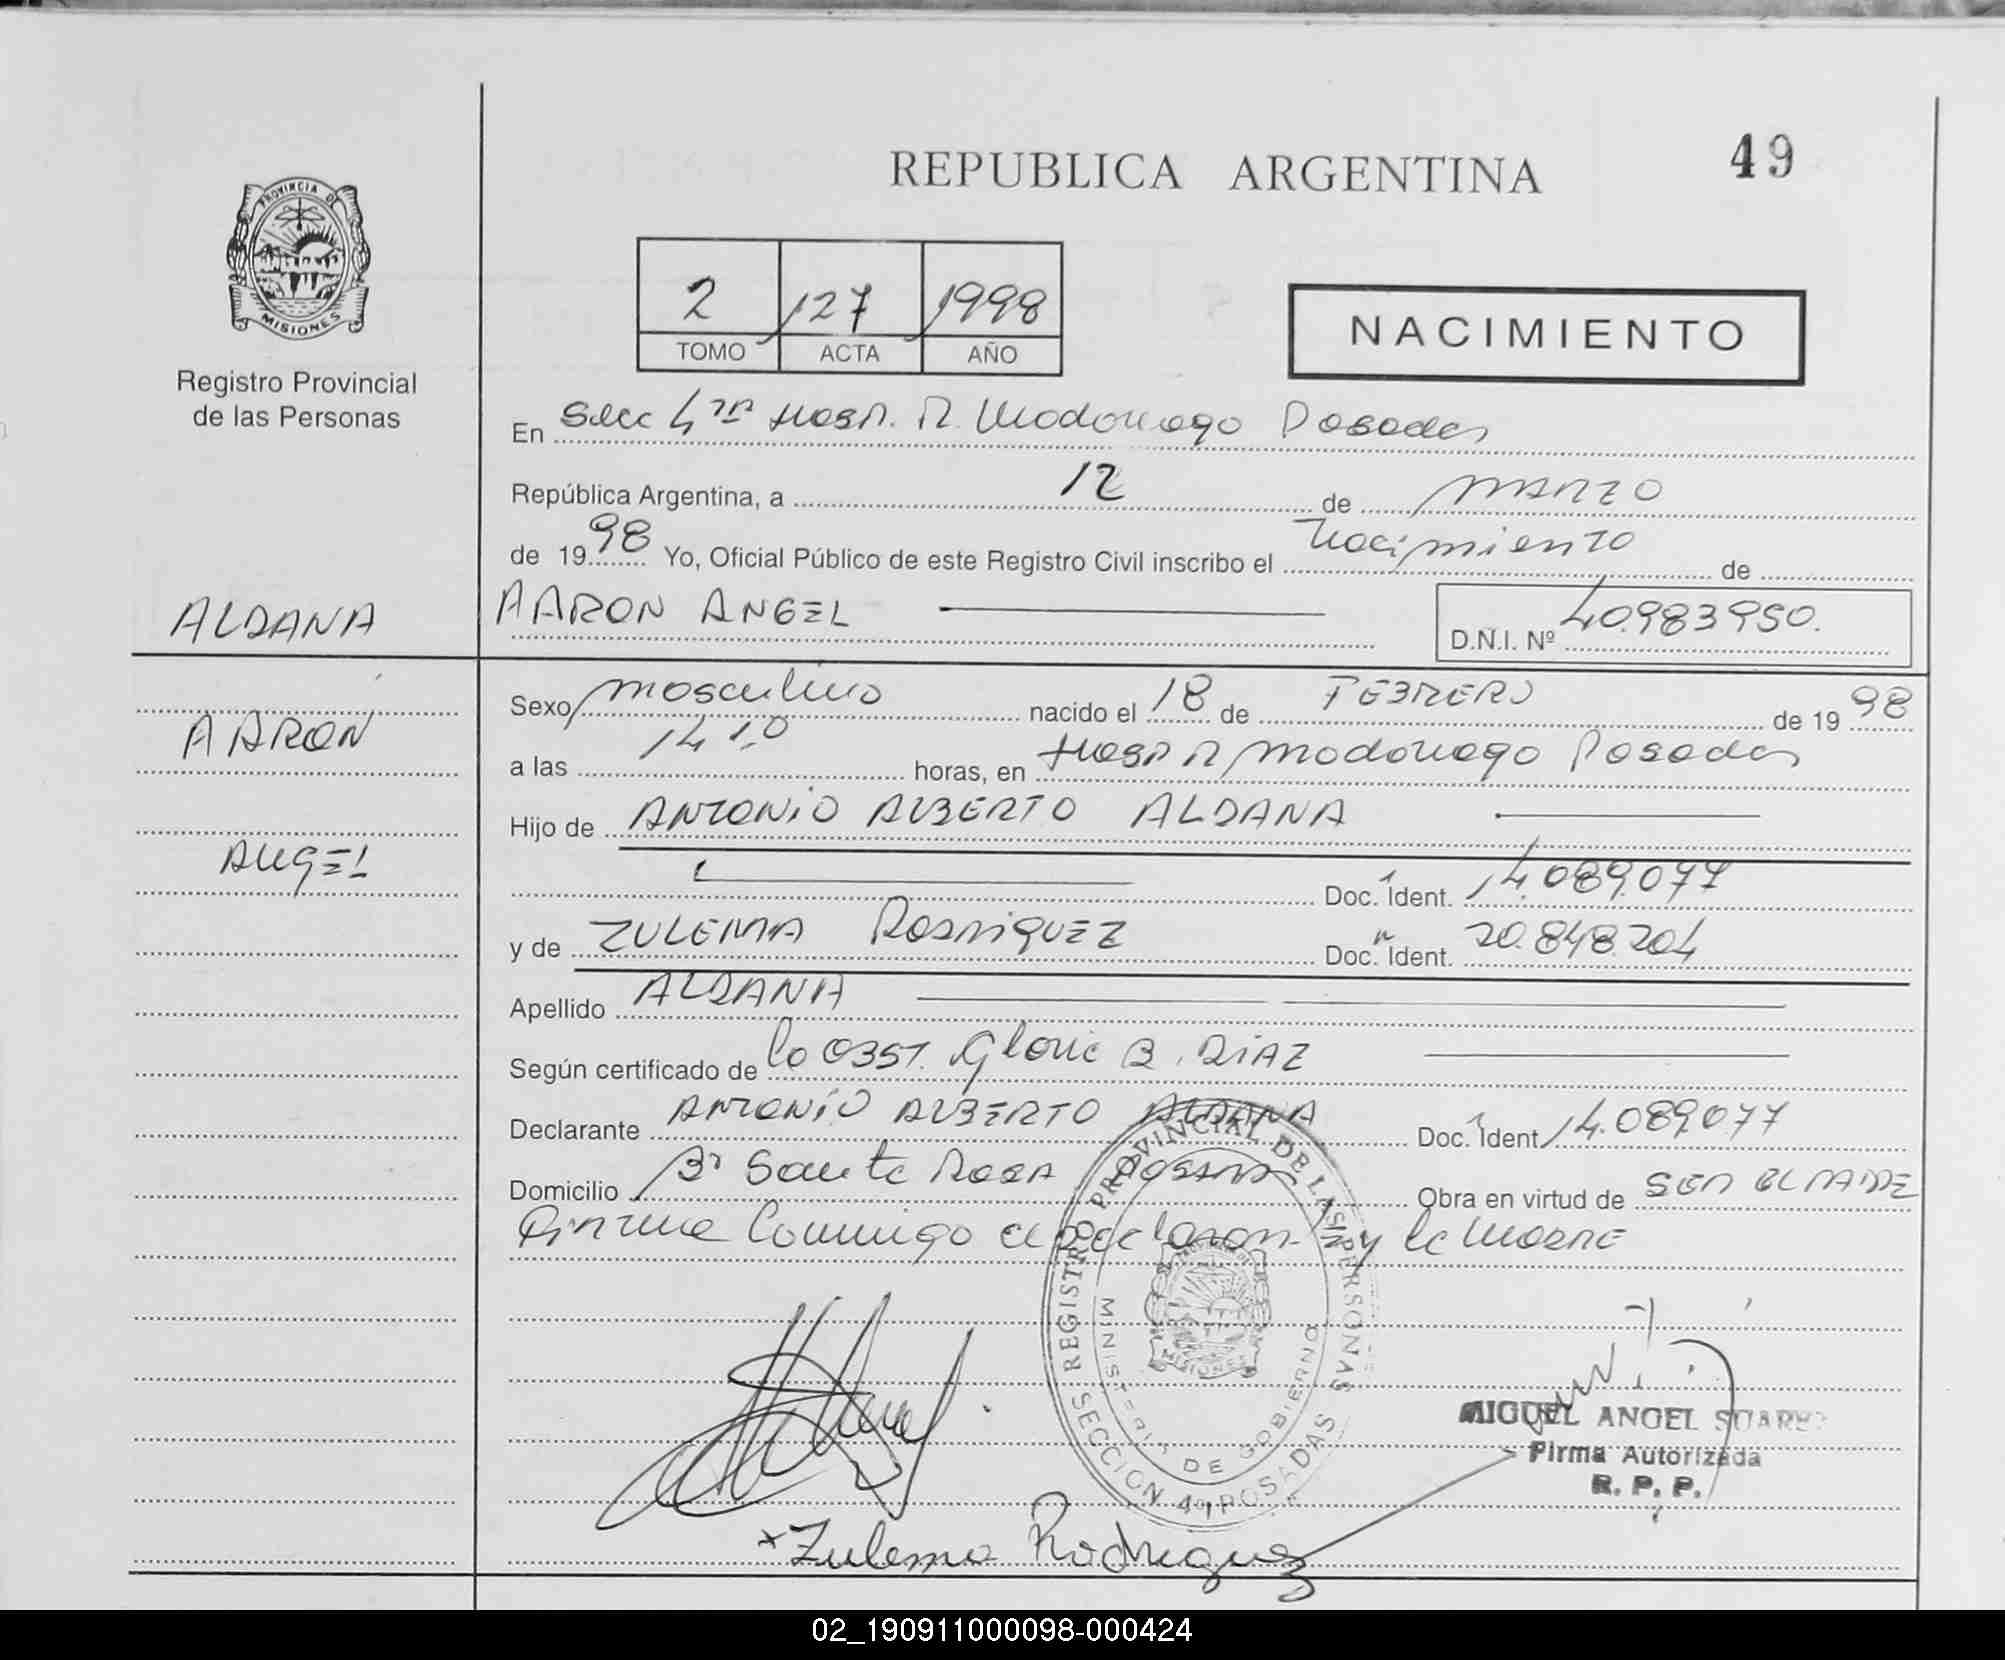 49
REPUBLICA ARGENTINA
PROVINCIA DE
MISIONES
Registro Provincial
de las Personas
2 127 1998
TOMO ACTA AÑO
NACIMIENTO
En Secc 4ta Hosp. R. Madariaga Posadas
República Argentina, a 12 de MARZO
de 1998 Yo, Oficial Público de este Registro Civil inscribo el Nacimiento de
ALDANA AARON ANGEL D.N.I. Nº 40.983.950.
Sexo masculino nacido el 18 de FEBRERO de 1998
AARON
a las 14 horas, en Hosp R Madariaga Posadas
Hijo de ANTONIO ALBERTO ALDANA
ANGEL
Doc. Ident. 14.089.077
y de ZULEMA RODRIGUEZ Doc. Ident. 20.848.204
Apellido ALDANA
Según certificado de la OBST. Gloria B. DIAZ
Declarante ANTONIO ALBERTO ALDANA Doc. Ident 14.089.077
Domicilio Bº Santa ROSA POSADAS Obra en virtud de SER EL PADRE
Firma Conmigo el Declaran. y la MADRE
REGISTRO PROVINCIAL DE LAS PERSONAS
MINISTERIO DE GOBIERNO
MISIONES
SECCION 4º POSADAS
MIGUEL ANGEL SUAREZ
Firma Autorizada
R. P. P.
Zulema Rodriguez
02_190911000098-000424